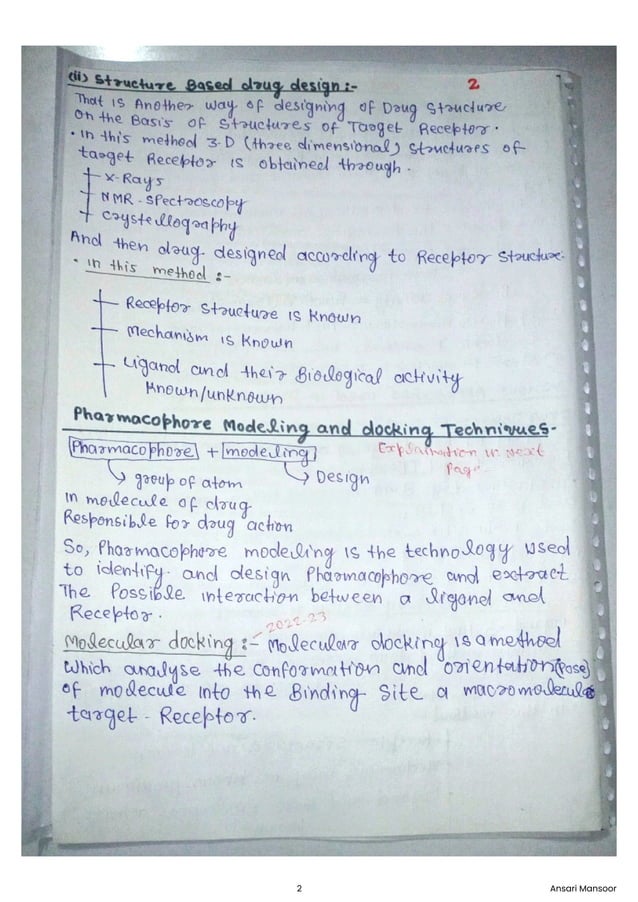 (ii) Structure Based drug design :- 2
That is Another way of designing of Drug Structure
on the Basis of Structures of Target Receptor.
• in this method 3-D (three dimensional) Structures of
target Receptor is obtained through.
X-Rays
NMR-Spectroscopy
Crystellography
And then drug designed according to Receptor Structure.
• in this method :-
Receptor Structure is Known
Mechanism is Known
Ligand and their Biological activity
Known/unknown
Pharmacophore Modeling and docking Techniques-
Pharmacophore + modeling Explaination in Next
Page
group of atom Design
in molecule of drug
Responsible for drug action
So, Pharmacophore modeling is the technology used
to identify and design Pharmacophore and extract
The Possible interaction between a ligand and
Receptor.
2022-23
Molecular docking :- Molecular docking is a method
which analyse the conformation and orientation (Pose)
of molecule into the Binding Site a macromolecular
target-Receptor.
2 Ansari Mansoor